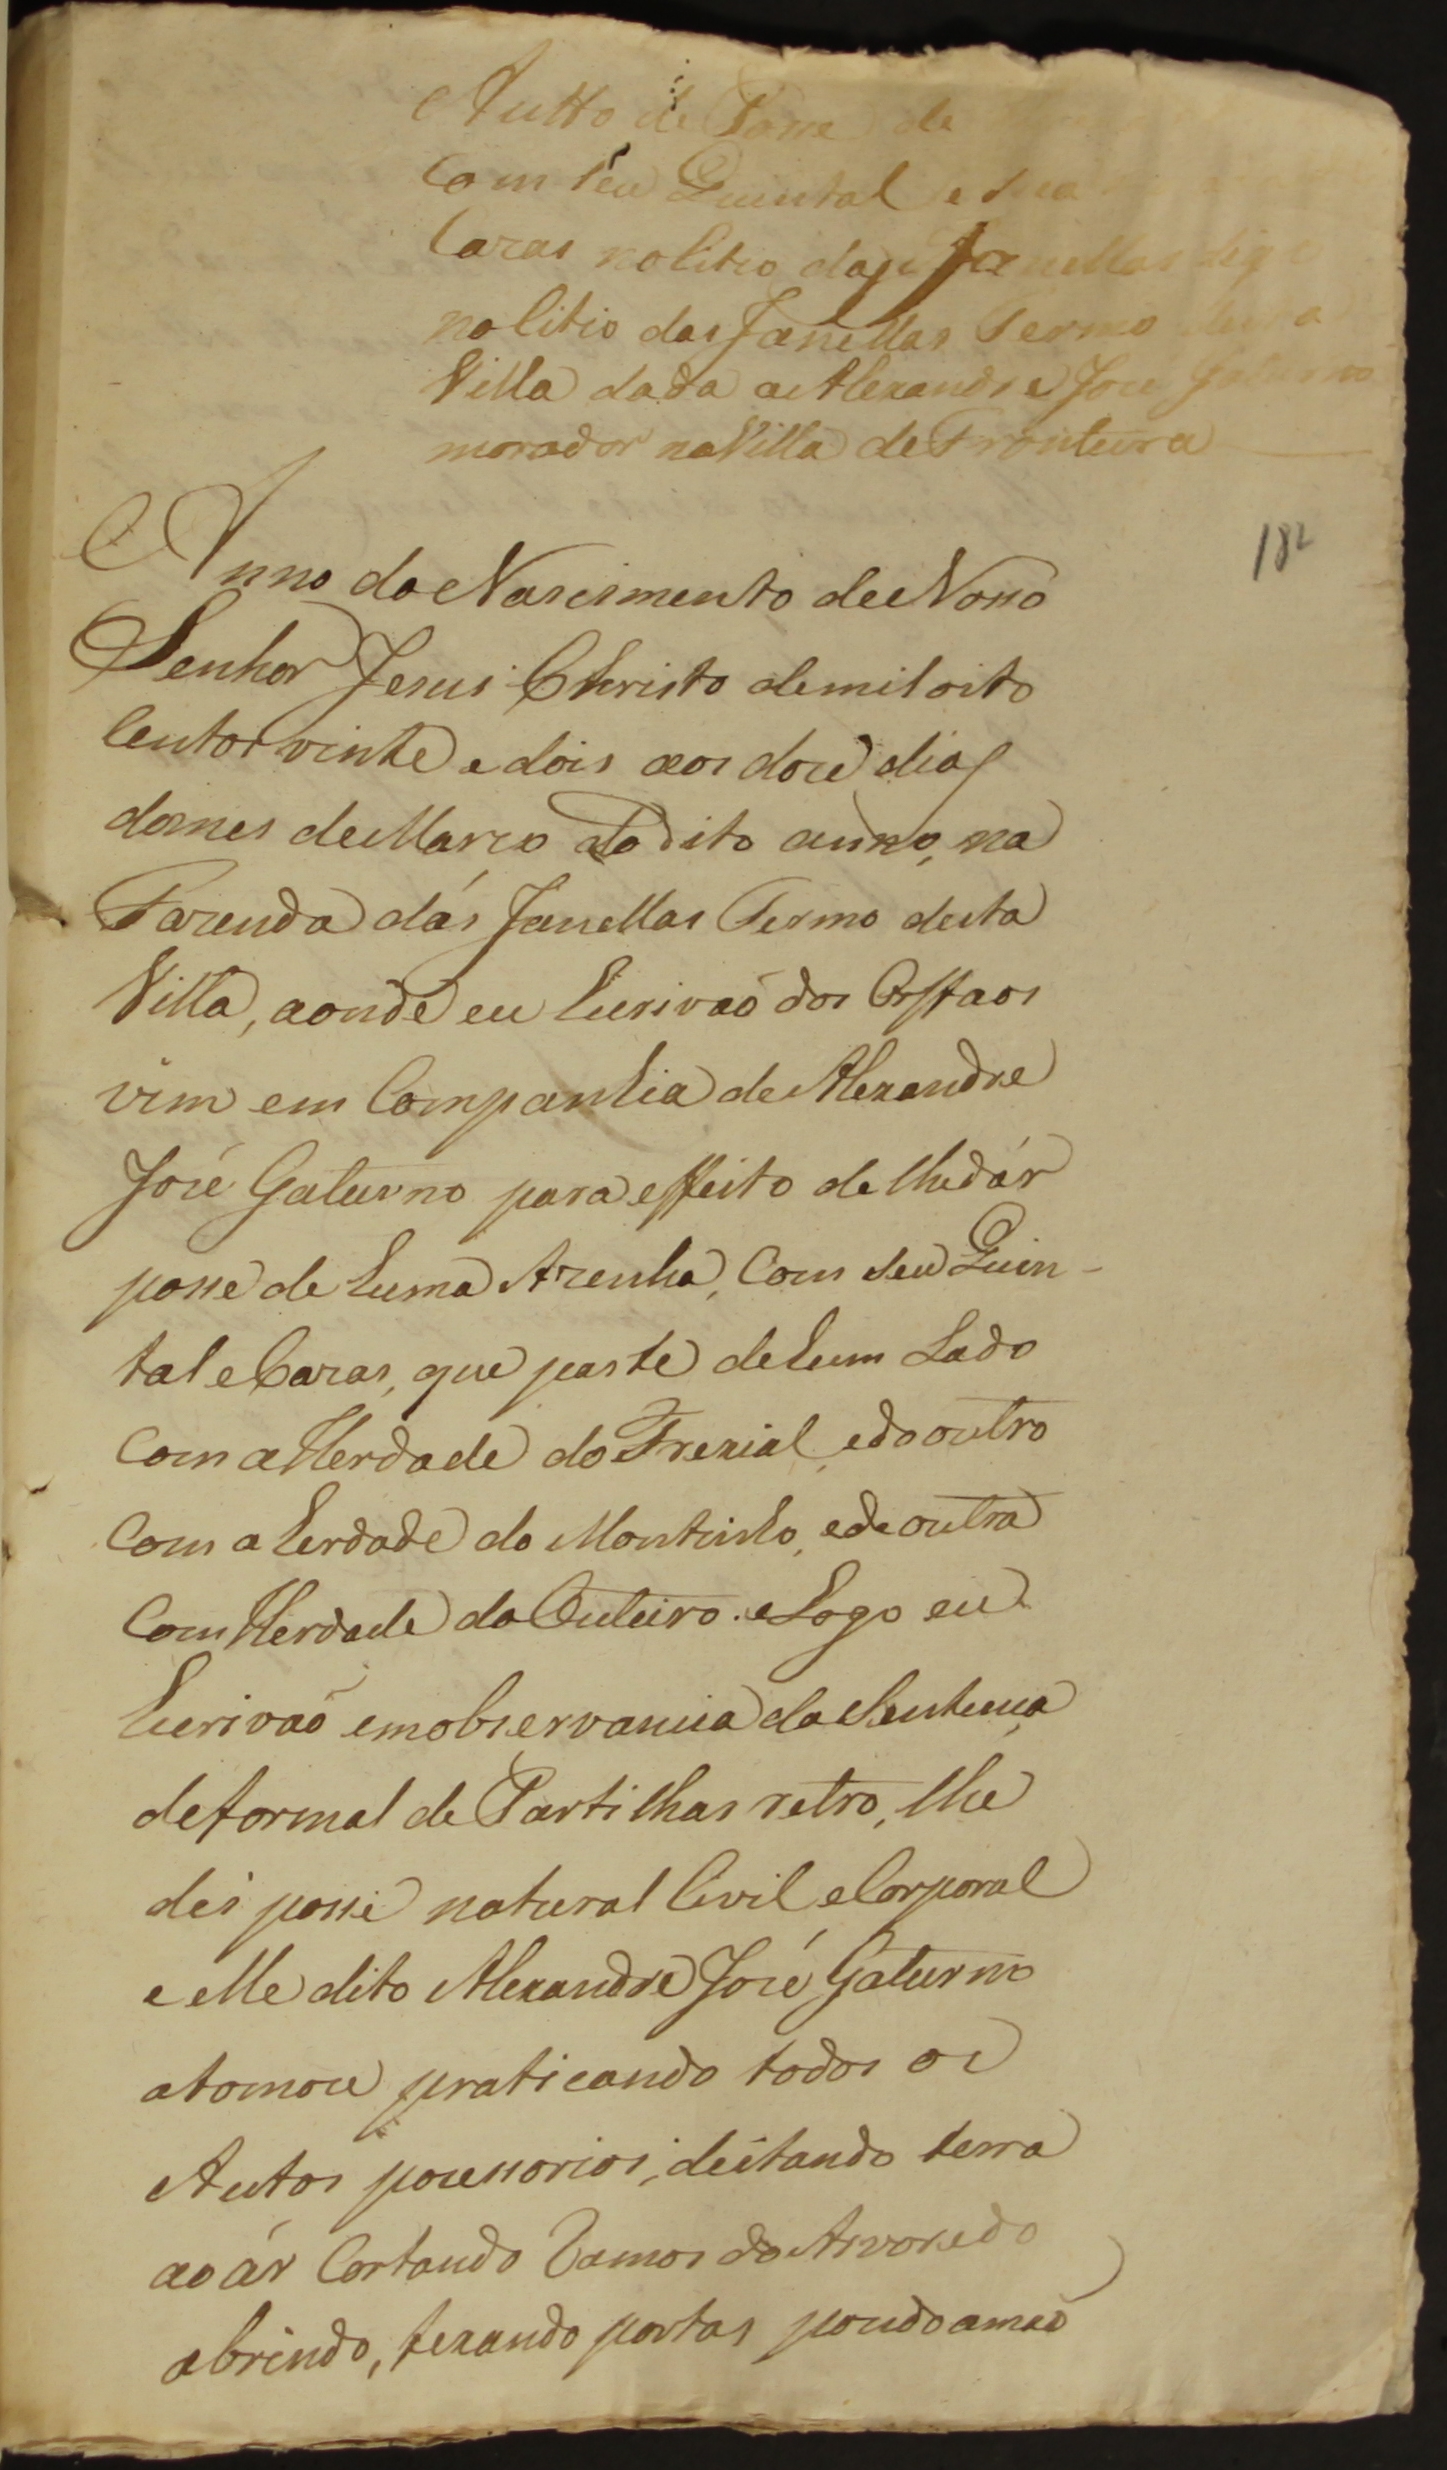 Autto de Posse de
Com seu Quintal e sua
Cazas no Citio das Janellas digo
no Citio das Janellas Termo desta
Villa dada a Alexandre José Galurno
morador na Villa de Fronteira
182
Anno do Nascimento de Nosso
Senhor Jesus Christo de mil oito
Centos vinte e dois aos doze dias
do mes de Março do dito anno, na
Fazenda dás Janellas Termo desta
Villa, aonde eu Escrivaõ dos Orffaos
vim em Companhia de Alexandre
José Galurno para effeito de lhe dár
posse de huma Azenha, Com seu Quin-
tal e Cazas, que parte de hum Lado
Com a Herdade do Frexial, e do outro
Com a herdade do Montinho, e de outra
Com Herdade do Outeiro. e Logo eu
Escrivaõ em observancia da Sentença
de formal de Partilhas retro, lhe
dei posse natural Civil e Corporal
e elle dito Alexandre José Galurno
a tomou praticando todos os
Autos pocessorios, deitando terra
ao ár Cortando Ramos do Arvoredo
abrindo, fexando portas pondo a maõ